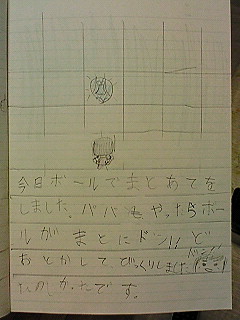 今日ボールでまとあてを
しました。パパもやったらボー
ルがまとにドン!!と
おとがしてびっくりしました。
ドン!!
たのしかったです。